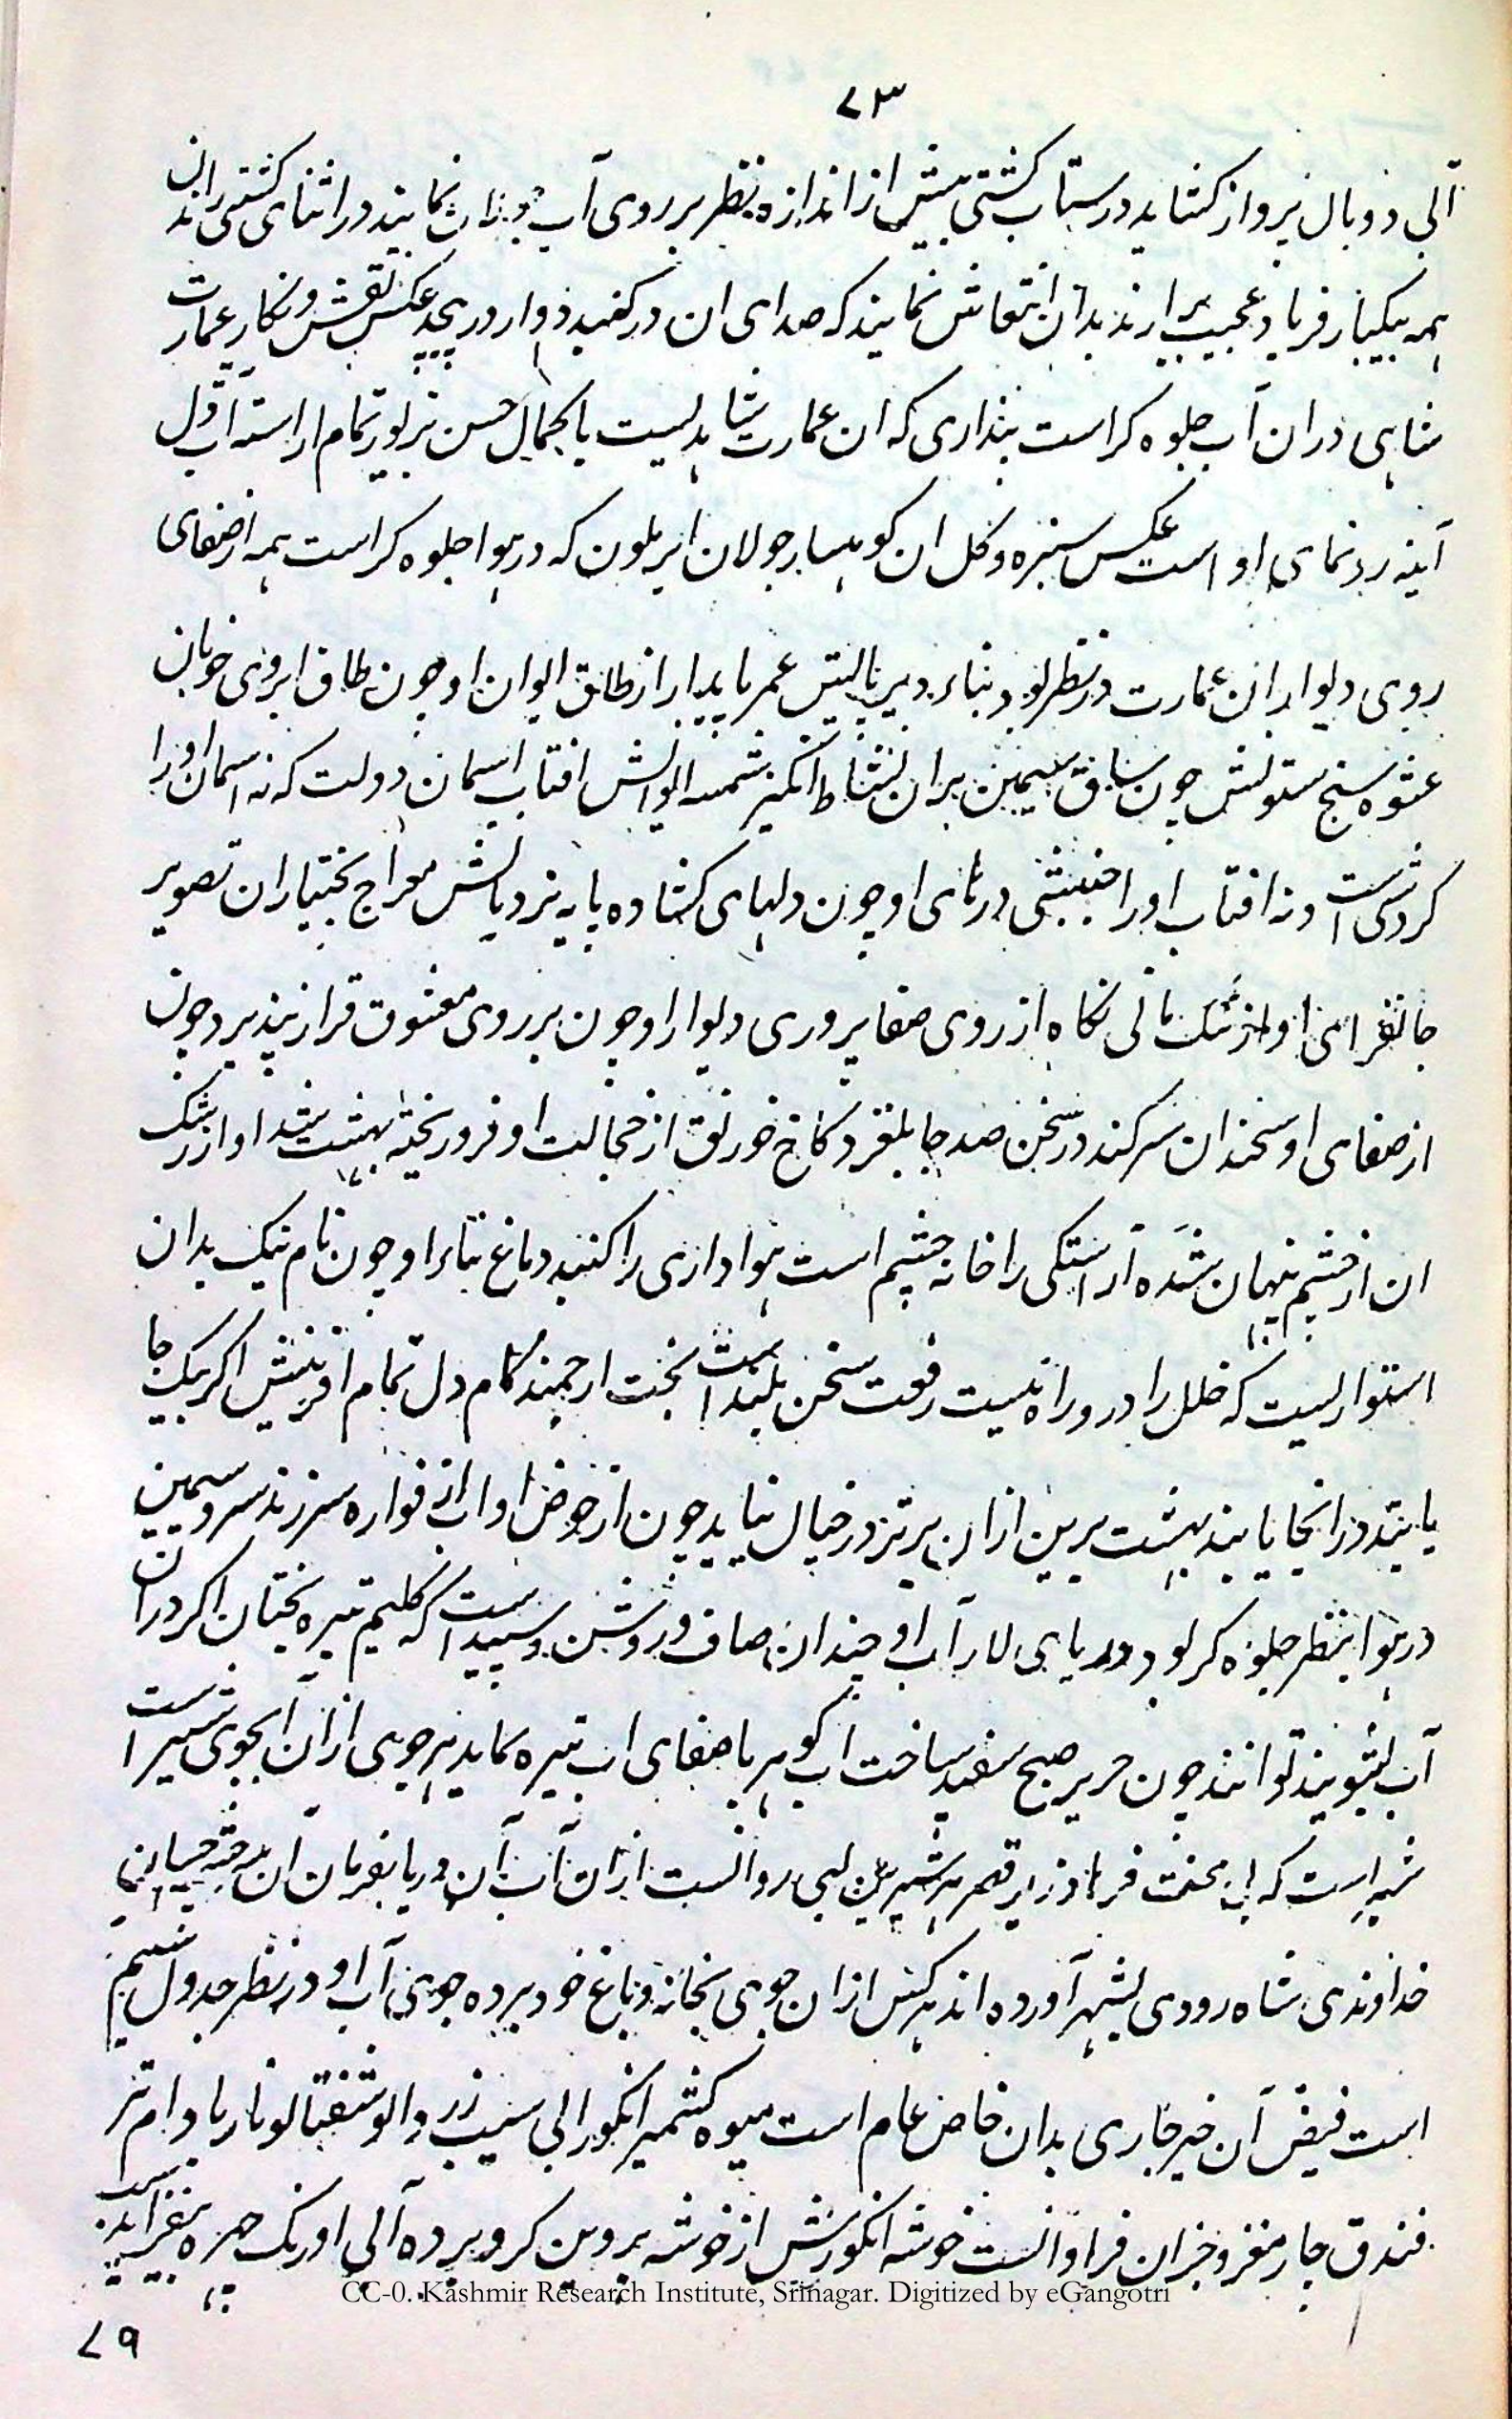 ۷۳
آبی دو بال پرواز کشاید در ستاب کشتی بیش از اندازه نظر بر روی آب نمایند در اثنای کشتی راندن
همه یکبار فریاد عجیب برارند بدان انتعاش نمایند که صدای ان در کنبد دوار در پیچد عکس نقش و نکار عمارت
شاهی دران آب جلوه کر است پنداری که ان عمارت شاهدیست با کمال حسن بزیور تمام اراسته آب ول
آینه رونمای او است عکس سبزه و کل ان کوهسار جولان ابر بلون که در هوا جلوه کر است همه از صفای
روی دیوار ان عمارت در نظر بود بناء دیر پایش عمر پایدار از طاق ایوان او چون طاق ابروی خوبان
عشوه سنج ستونش چون ساق سیمین بران نشاط انکیز شمسه ایوانش افتاب اسمان دولت که نه اسمان او را
کردش است و نه افتاب او را جنبشی درهای او چون دلهای کشاده پایه نردبانش معراج بختیاران تصویر
جانفزای او از رشک مانی نکاه از روی صفا پروری دیوار او چون بر روی معشوق قرار نپذیرد چون
از صفای او سخندان سر کند در سخن صد جا بلغزد کاخ خورنق از خجالت او فرو ریخته بهشت شداد از رشک
ان از چشم پنهان شده آراستکی را خانه چشم است هواداری را کنبد دماغ بناء او چون نام نیک بدان
استواریست که خلل را درو راه نیست رفعت سخن بلند است بخت ارجمند کام دل تمام افرینش اکر یک جا
یابند در انجا یابند بهشت برین ازان برتر در خیال نیاید چون از حوض او اب از فواره سر زند سرو سیمین
در هوا بنظر جلوه کر بود دریای لار آب او چندان صاف و روشن و سپید است که کلیم تیره بختان اکر دران
آب بشویند توانند چون حریر صبح سفید ساخت اب کوهر با صفای اب تیره نماید هر جوی ازان ابجوی شیر است
شیر است که بی محنت فرهاد زیر قصر هر شیرین لبی روانست ازان آب آن دریا بفرمان آن
خداوندی شاه رودی بشهر آورده اند هر کس ازان جوی بخانه و باغ خود برده جوی آب او در نظر جدول سیم
است فیض آن خیر جاری بدان خاص عام است میوه کشمیر انکور ابی سیب زرد الو شفتالو نار بادام تر
فندق چار مغز و جز ان فراوانست خوشه انکورش از خوشه پروین کرو برده آلی او رنک چهره
CC-0. Kashmir Research Institute, Srinagar. Digitized by eGangotri
۷۹